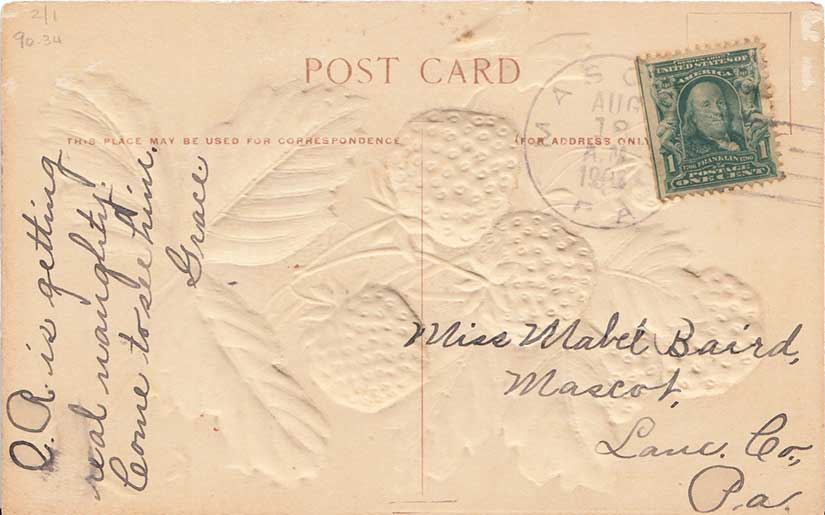 2/1
90-34
POST CARD
THIS PLACE MAY BE USED FOR CORRESPONDENCE
(FOR ADDRESS ONLY
MASCO
AUG
A.M
PA
SERIES 1902
UNITED STATES OF
AMERICA
1 1
1706 FRANKLIN 1790
POSTAGE
ONE CENT
Q. R. is getting
real naughty.
Come to see him.
Grace
Miss Mabel Baird,
Mascot,
Lanc. Co.,
Pa.